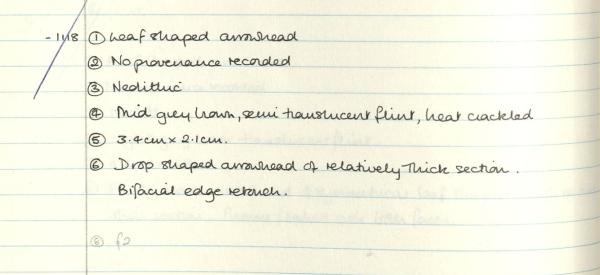 - 1118 ① Leaf shaped arrowhead
② No provenance recorded
③ Neolithic
④ Mid grey brown, semi translucent flint, heat crackled
⑤ 3.4cm x 2.1cm.
⑥ Drop shaped arrowhead of relatively thick section.
Bifacial edge retouch.
⑧ f2